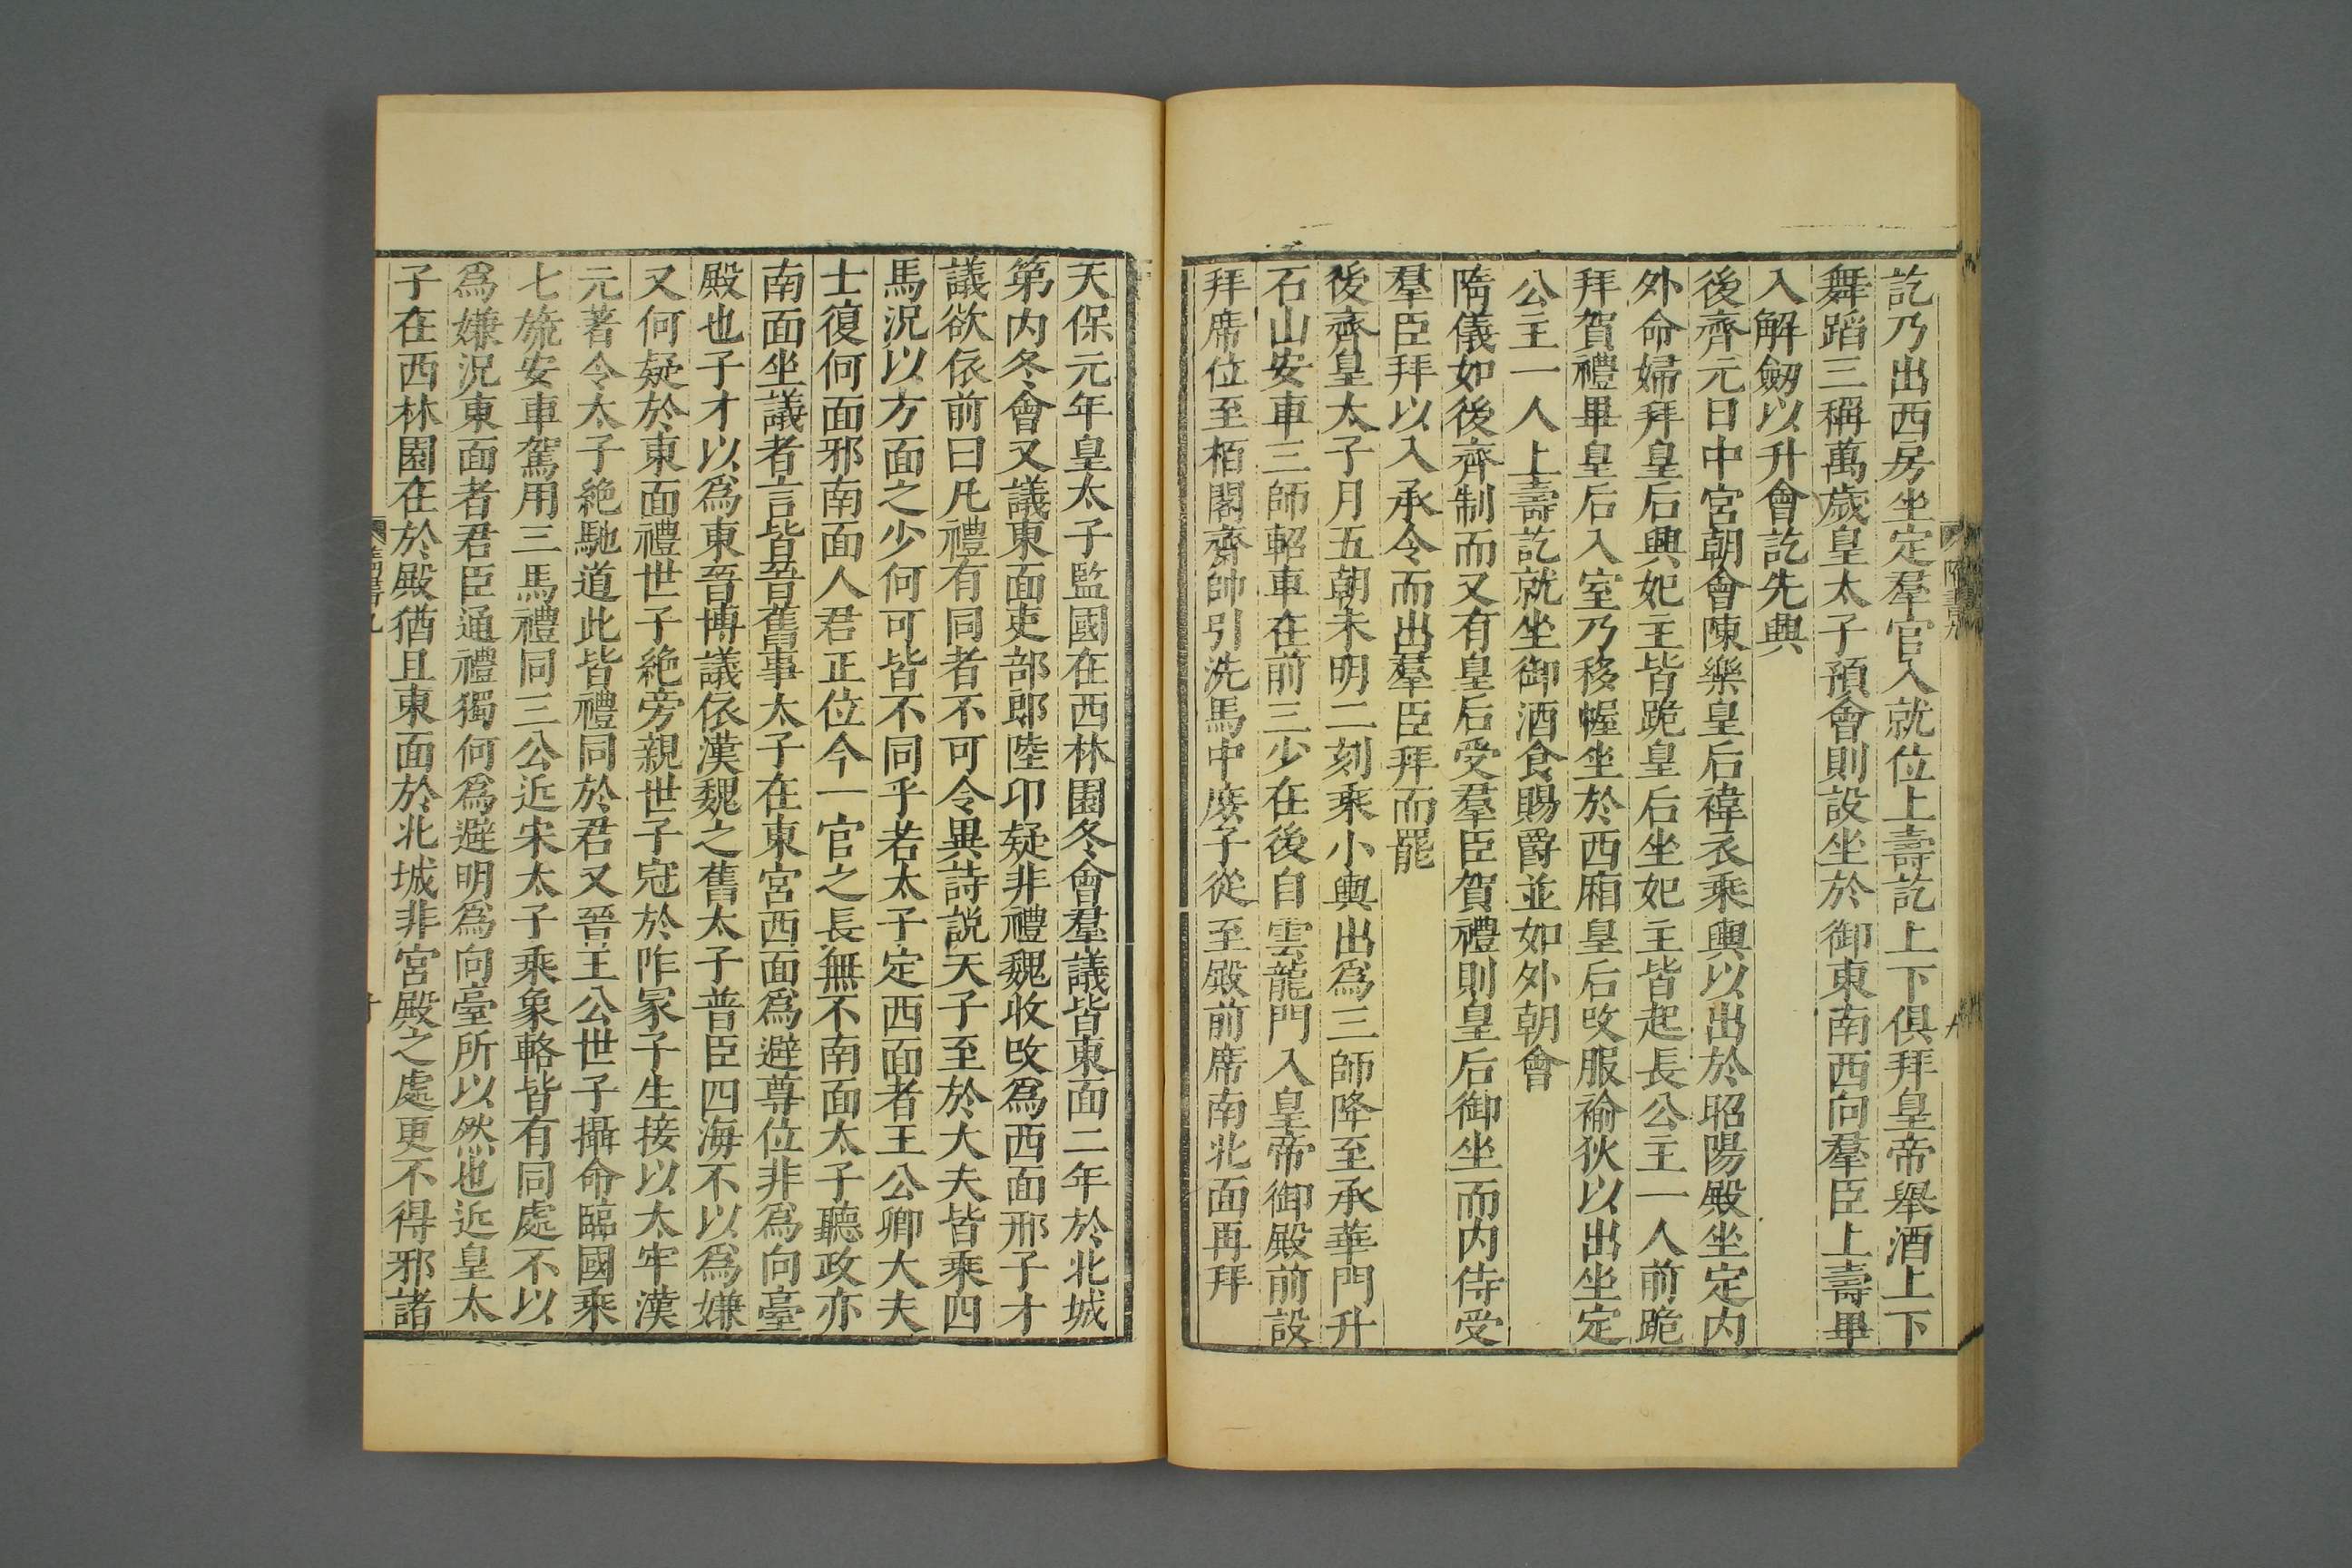 訖乃出西房坐定羣官入就位上壽訖上下俱拜皇帝舉酒上下
舞蹈三稱萬歲皇太子預會則設坐於御東南西向羣臣上壽畢
入解劒以升會訖先興
後齊元日中宮朝會陳樂皇后褘衣乘輿以出於昭陽殿坐定内
外命婦拜皇后興妃主皆跪皇后坐妃主皆起長公主一人前跪
拜賀禮畢皇后入室乃移幄坐於西廂皇后改服褕狄以出坐定
公主一人上壽訖就坐御酒食賜爵並如外朝會
隋儀如後齊制而又有皇后受羣臣賀禮則皇后御坐而内侍受
羣臣拜以入承令而出羣臣拜而罷
後齊皇太子月五朝未明二刻乘小輿出爲三師降至承華門升
石山安車三師軺車在前三少在後自雲龍門入皇帝御殿前設
拜席位至栢閣齋帥引洗馬中庶子從至殿前席南北面再拜
天保元年皇太子監國在西林園冬會羣議皆東面二年於北城
第内冬會又議東面吏部郎陸卬疑非禮魏收改爲西面邢子才
議欲依前曰凡禮有同者不可令異詩説天子至於大夫皆乘四
馬況以方面之少何可皆不同乎若太子定西面者王公卿大夫
士復何面邪南面人君正位今一官之長無不南面太子聽政亦
南面坐議者言皆晉舊事太子在東宮西面爲避尊位非爲向臺
殿也子才以爲東晉博議依漢魏之舊太子普臣四海不以爲嫌
又何疑於東面禮世子絶旁親世子冠於阼冢子生接以太牢漢
元著令太子絶馳道此皆禮同於君又晉王公世子攝命臨國乘
七旒安車駕用三馬禮同三公近宋太子乘象輅皆有同處不以
爲嫌況東面者君臣通禮獨何爲避明爲向臺所以然也近皇太
子在西林園在於殿猶且東面於北城非宮殿之處更不得邪諸